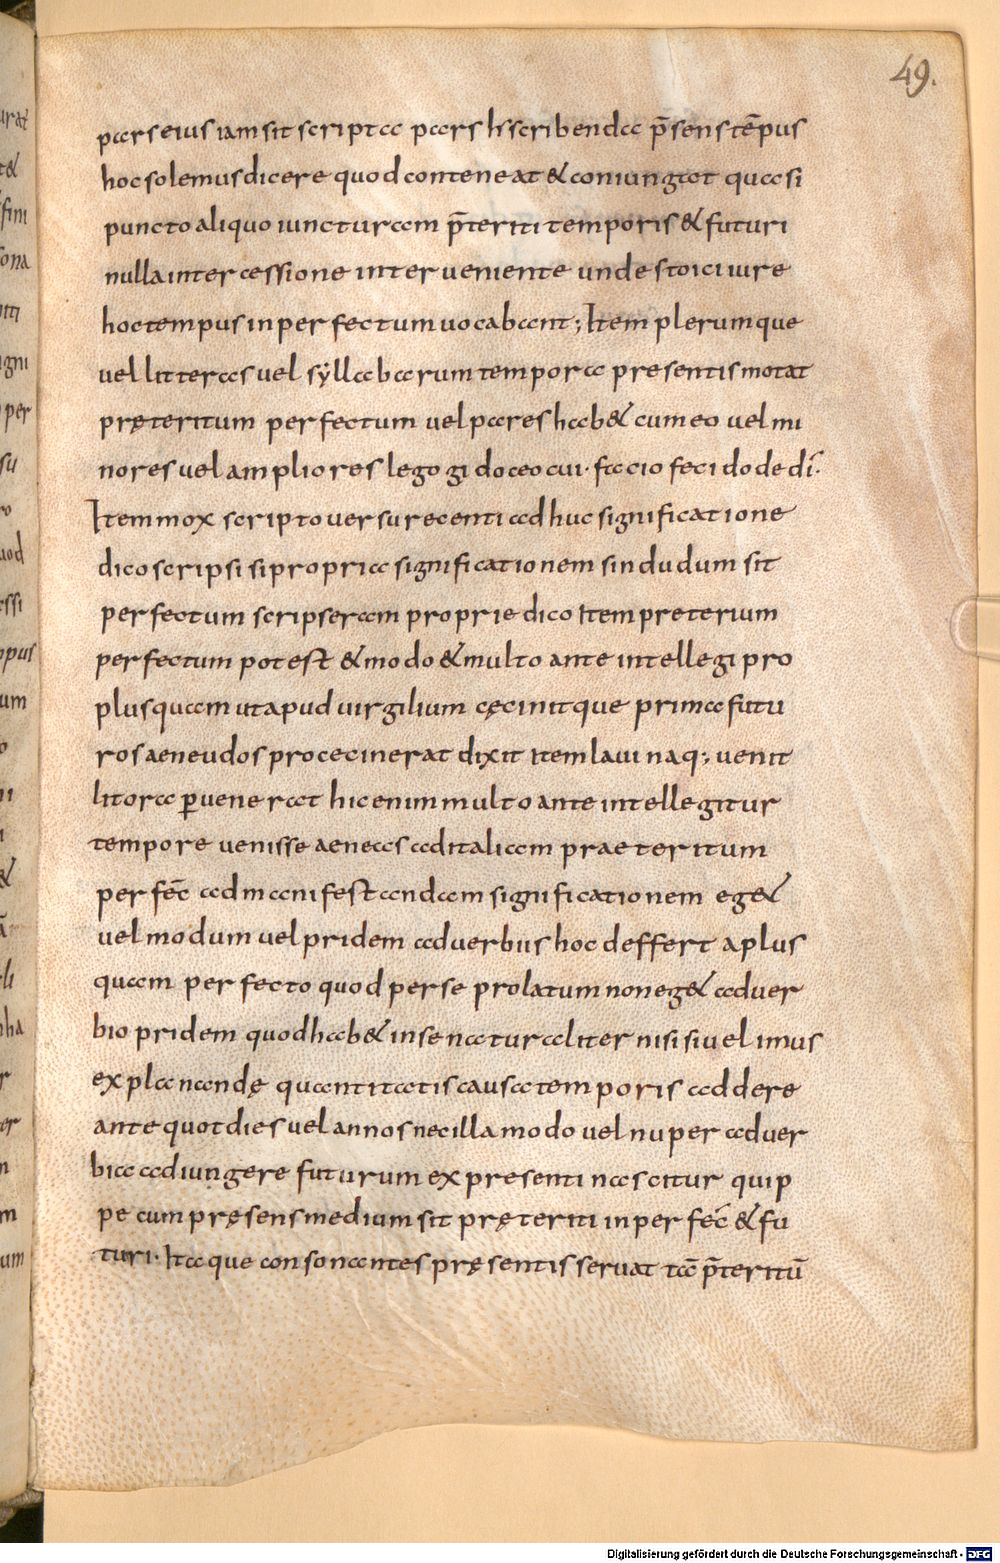 49.
pars eius iam sit scripta pars ħ scribenda p̄sens tēpus
hoc solemus dicere quod conteneat & coniungat quasi
puncto aliquo iuncturam p̄teriti temporis & futuri
nulla intercessione interueniente unde stoici iure
hoc tempus inperfectum uocabant; Item plerumque
uel litteras uel syllabarum tempora presentis motat
pręteritum perfectum uel pares hab& cum eo uel mi
nores uel ampliores lego gi doceo cui· facio feci do dedi·
Item mox scripto uersu recenti adhuc significatione
dico scripsi si propria significationem sin dudum sit
perfectum scripseram proprie dico Item preterium
perfectum potest & modo & multo ante intellegi pro
plusquam ut apud uirgilium cęcinitque prima futu
ros aeneudos pro cecinerat dixit Item lauinaq; uenit
litora puenerat hic enim multo ante intellegitur
tempore uenisse aeneas ad italiam praeteritum
perfec̄ ad manifestandam significationem eg&
uel modum uel pridem aduerbiis hoc deffert a plus
quam perfecto quod per se prolatum non eg& aduer
bio pridem quod hab& in se naturaliter nisi si uelimus
explanande̜ quantitatis causa temporis addere
ante quot dies uel annos nec illa modo uel nuper aduer
bia adiungere futurum ex presenti nascitur quip
pe cum pręsens medium sit pręteriti inperfec̄ & fu
turi· Itaque consonantes pręsentis seruat tā p̄teritū
Digitalisierung gefördert durch die Deutsche Forschungsgemeinschaft - DFG